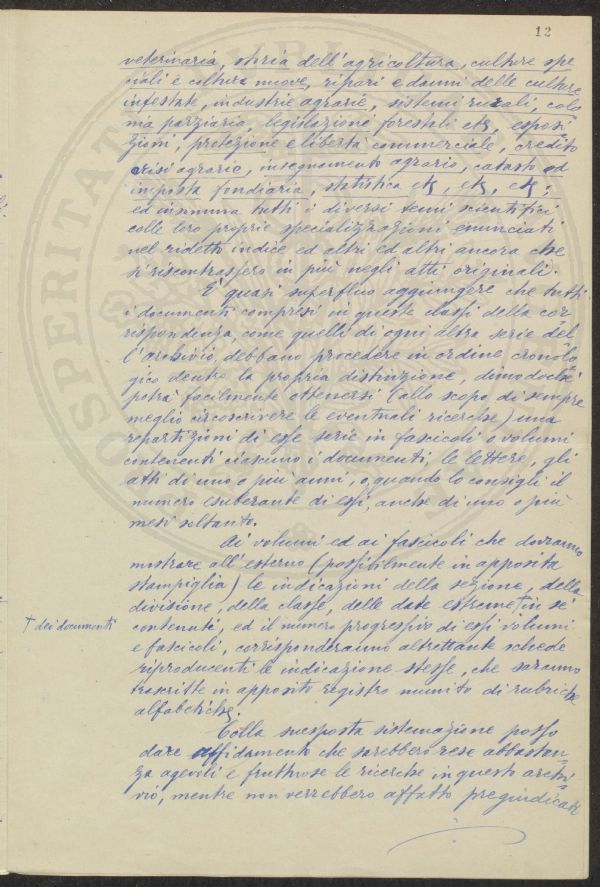 12
veterinaria, storia dell'agricoltura, culture spe
ciali e coltura nuove, ripari e danni delle culture
infestate, industrie agrarie, sistemi rurali, colo
nia parziaria, legislazione forestali etc, esposi
zioni, protezione e libertà commerciale, credito
crisi agrarie, insegnamento agrario, catasto ed
imposta fondiaria, statistica etc, etc, etc;
ed insomma tutti i diversi temi scientifici
colle loro proprie specializzazioni enunciati
nel ridetto indice ed altri ed altri ancora che
si riscontrassero in più negli atti originali.
È quasi superfluo aggiungere che tutti
i documenti compresi in queste classi della cor
rispondenza, come quelli di ogni altra serie del
l'archivio, debbano procedere in ordine cronolo
gico dentro la propria distinzione, dimodoctà
potrà facilmente ottenersi (allo scopo di sempre
meglio circoscrivere le eventuali ricerche) una
repartizioni di esse serie in fascicoli o volumi
contenenti ciascuno i documenti, le lettere, gli
atti di uno o più anni, o quando lo consigli il
numero esuberante di essi, anche di uno o più
mesi soltanto.
Ai volumi ed ai fascicoli che dovranno
mostrare all'esterno (possibilmente in apposita
stampiglia) le indicazioni della sezione, della
divisione, della classe, delle date estreme † in sè
† dei documenti
contenuti, ed il numero progressivo di essi volumi
e fascicoli, corrisponderanno altrettante schede
riproducenti le indicazione stesse, che saranno
trascritte in apposito registro munito di rubriche
alfabetiche.
Colla suesposta sistemazione posso
dare affidamento che sarebbero rese abbastan
za agevoli e fruttuose le ricerche in questo archi
vio, mentre non verrebbero affatto pregiudicati
PROSPERITÀ